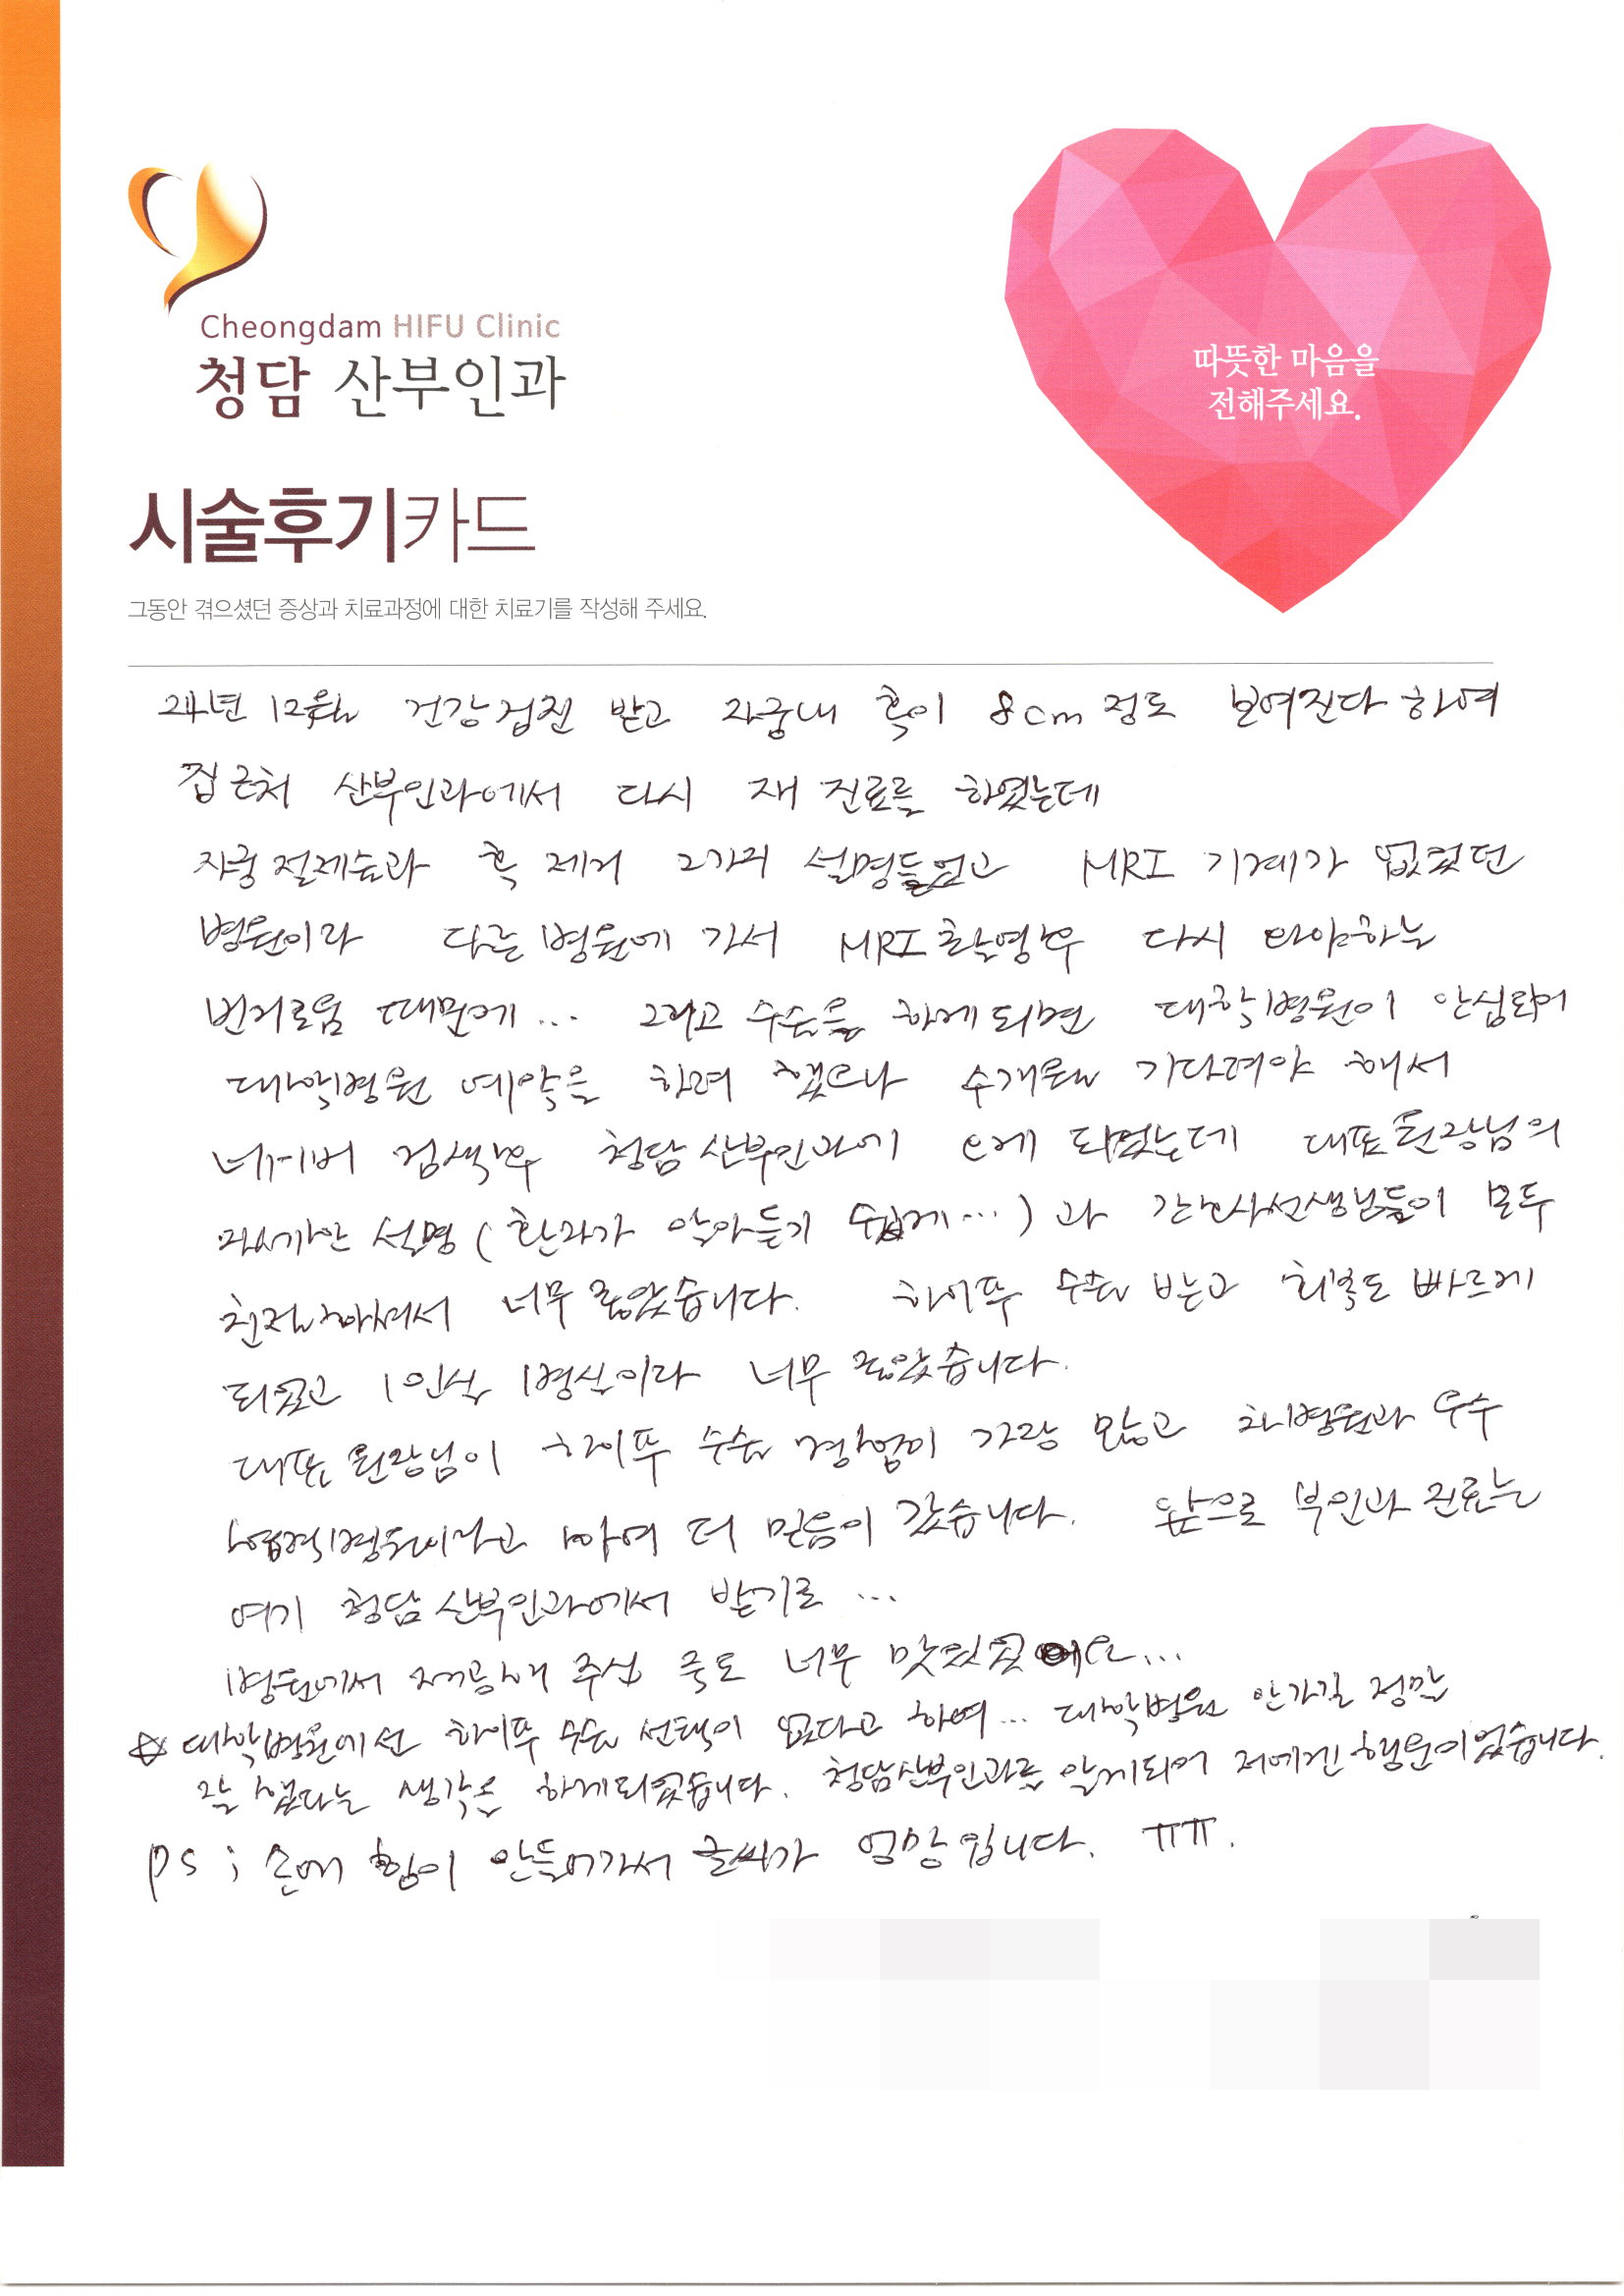 Cheongdam HIFU Clinic
청담 산부인과
따뜻한 마음을
전해주세요.
시술후기카드
그동안 겪으셨던 증상과 치료과정에 대한 치료기를 작성해 주세요.
24년 12월 건강검진 받고 자궁내 혹이 8cm 정도 보여진다 하여
집근처 산부인과에서 다시 재 진료를 하였는데
자궁 절제술과 혹 제거 2가지 설명들었고 MRI 기계가 없었던
병원이라 다른병원에 가서 MRI 촬영후 다시 와야하는
번거로움 때문에... 그리고 수술을 하게되면 대학병원이 안심되어
대학병원 예약을 하려 했으나 수개월 기다려야 해서
네이버 검색후 청담 산부인과에 오게 되었는데 대표원장님의
자세한 설명 (환자가 알아듣기 쉽게...) 과 간호사선생님들이 모두
친절하셔서 너무 좋았습니다. 하이푸 수술 받고 회복도 빠르게
되었고 1인실 병실이라 너무 좋았습니다.
대표 원장님이 하이푸 수술 경험이 가장 많고 차병원과 우수
협력병원이라고 하여 더 믿음이 갔습니다. 앞으로 부인과 진료는
여기 청담 산부인과에서 받기로 ...
병원에서 제공해 주신 죽도 너무 맛있었어요...
☆ 대학병원에선 하이푸 수술 선택이 없다고 하여... 대학병원 안가길 정말
잘 했다는 생각을 하게되었습니다. 청담산부인과를 알게되어 저에겐 행운이었습니다.
PS ; 손에 힘이 안들어가서 글씨가 엉망입니다. ㅠㅠ.